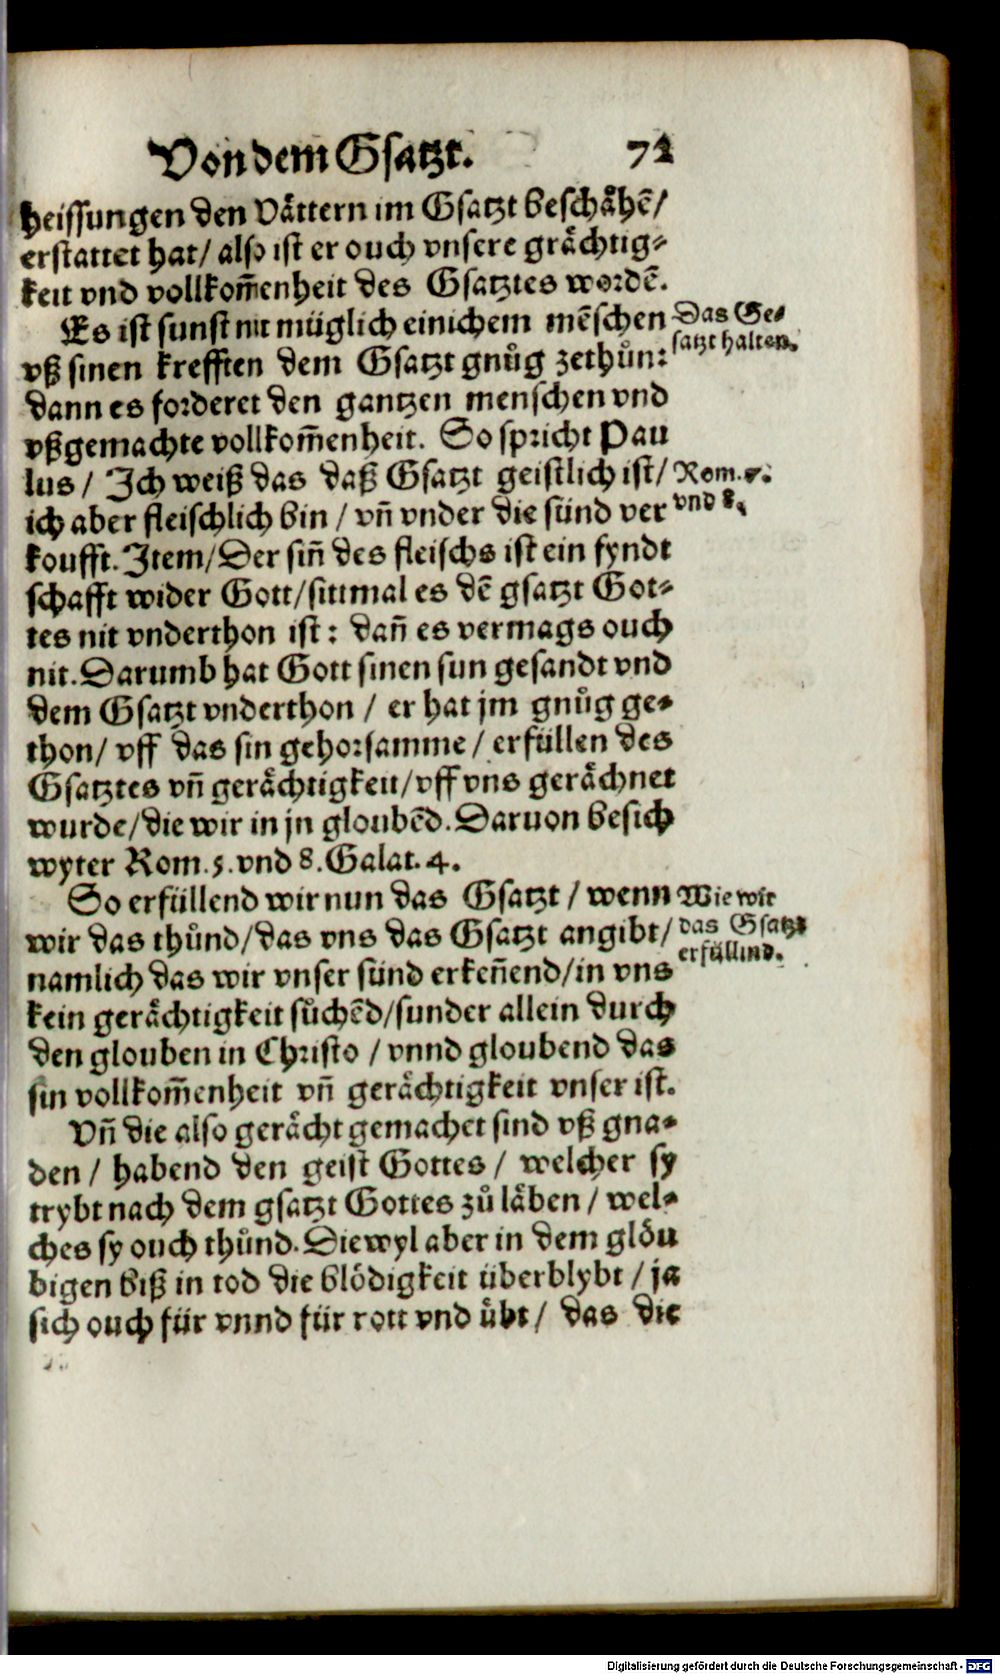 Von dem Gsatzt. 72
heissungen den Vättern im Gsatzt beschähē/
erstattet hat/ also ist er ouch vnsere grächtig⸗
keit vnd vollkom̄enheit des Gsatztes wordē.
Es ist sunst nit müglich einichem mēschen
vß sinen krefften dem Gsatzt gnůg zethůn:
dann es forderet den gantzen menschen vnd
vßgemachte vollkom̄enheit. So spricht Pau
lus / Ich weiß das daß Gsatzt geistlich ist/
ich aber fleischlich bin / vn̄ vnder die sünd ver
koufft. Item/ Der sin̄ des fleischs ist ein fyndt
schafft wider Gott/ sittmal es dē gsatzt Got⸗
tes nit vnderthon ist : dan̄ es vermags ouch
nit. Darumb hat Gott sinen sun gesandt vnd
dem Gsatzt vnderthon / er hat jm gnůg ge⸗
thon/ vff das sin gehorsamme / erfüllen des
Gsatztes vn̄ gerächtigkeit/ vff vns gerächnet
wurde/ die wir in jn gloubēd. Daruon besich
wyter Rom. 5. vnd 8. Galat. 4.
So erfüllend wir nun das Gsatzt / wenn
wir das thůnd/ das vns das Gsatzt angibt/
namlich das wir vnser sünd erken̄end/ in vns
kein gerächtigkeit sůchēd/ sunder allein durch
den glouben in Christo / vnnd gloubend das
sin vollkom̄enheit vn̄ gerächtigkeit vnser ist.
Vn̄ die also gerächt gemachet sind vß gna⸗
den / habend den geist Gottes / welcher sy
trybt nach dem gsatzt Gottes zů läben / wel⸗
ches sy ouch thůnd. Diewyl aber in dem glöu
bigen biß in tod die blödigkeit überblybt / ja
sich ouch für vnnd für rott vnd übt / das die
Das Ge⸗
satzt halten.
Rom. 7.
vnd 8.
Wie wir
das Gsatzt
erfüllind.
Digitalisierung gefördert durch die Deutsche Forschungsgemeinschaft - DFG